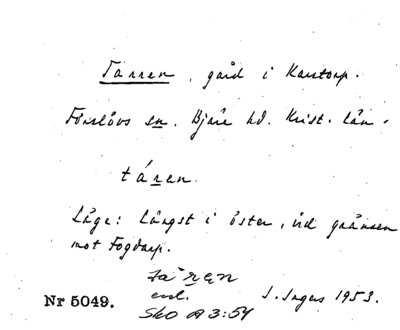 Tarren, gård i Karstorp.
Förslövs sn. Bjäre hd. Krist. län.
táren
Läge: Längst i öster, vid gränsen
mot Fogdarp.
enl.
Sko A 3:54
Nr 5049. I. Ingers 1953.